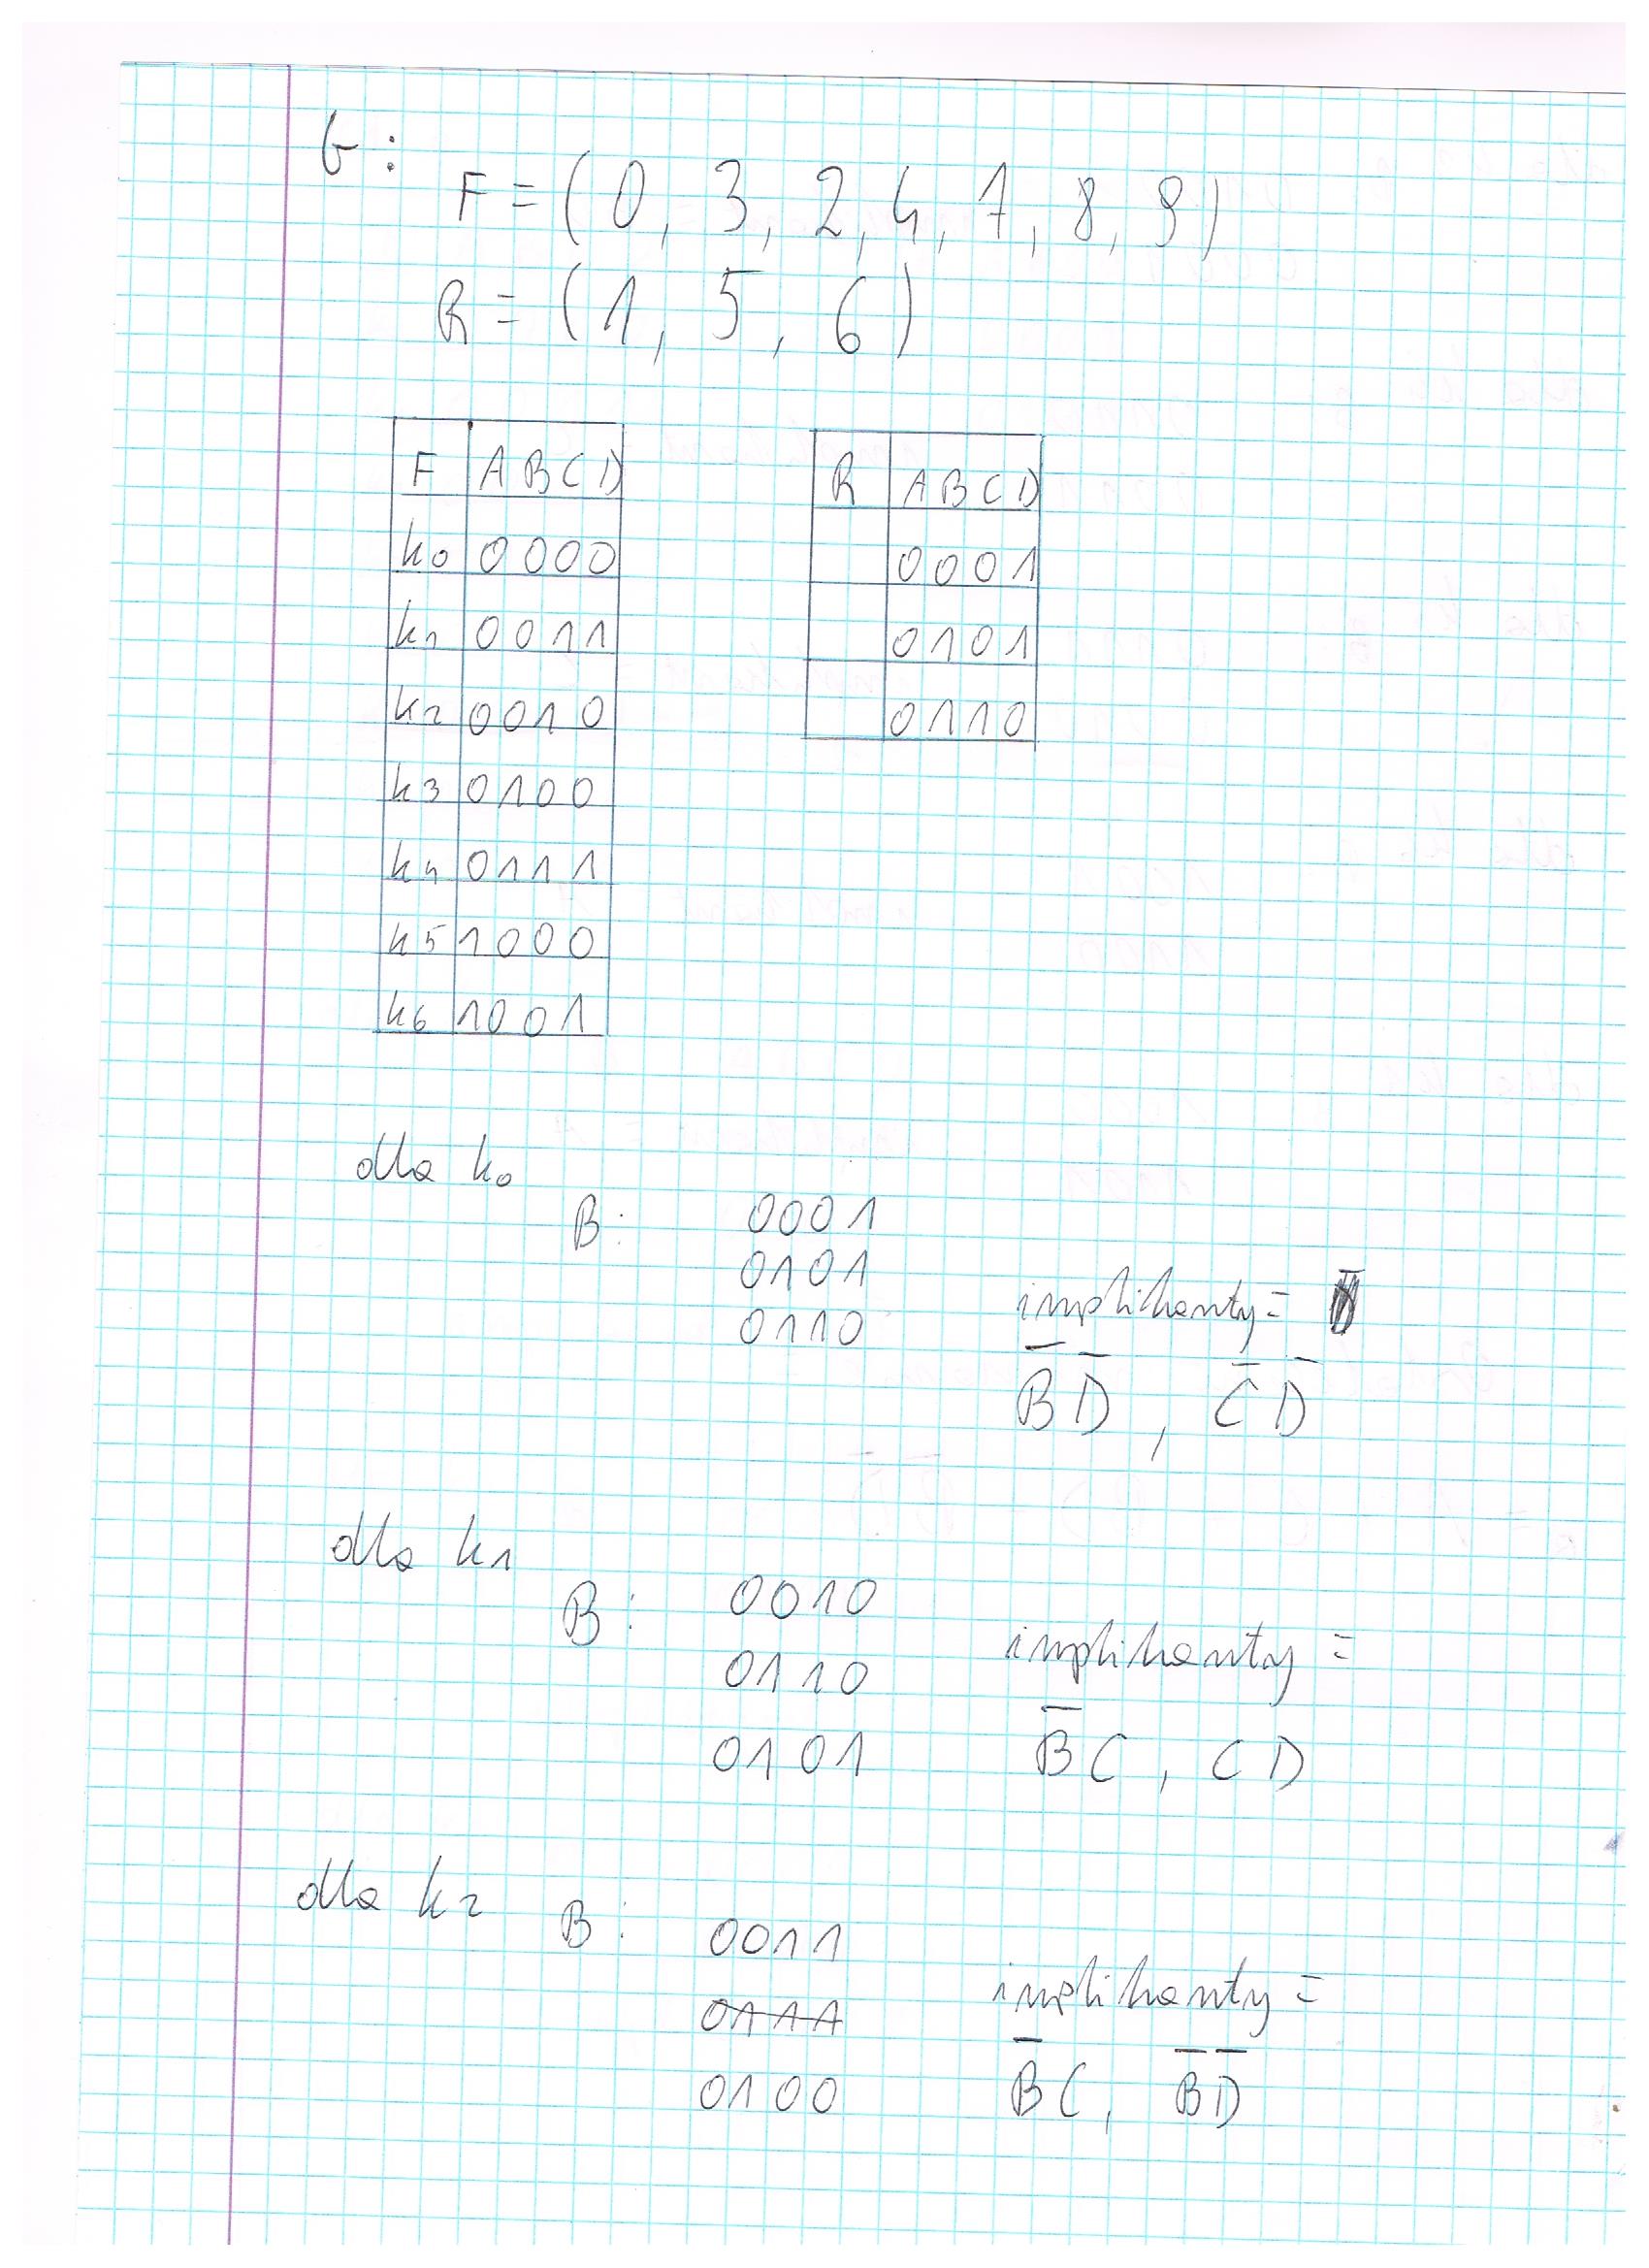 G:
F = (0, 3, 2, 4, 7, 8, 9)
R = (1, 5, 6)
F A B C D
k0 0000
k1 0011
k2 0010
k3 0100
k4 0111
k5 1000
k6 1001
R A B C D
0001
0101
0110
dla k0
B: 0001
0101
0110
implikanty =
B̅ D̅ , C̅ D̅
dla k1
B: 0010
0110
0101
implikanty =
B̅ C , C D
dla k2 B: 0011
0111
0100
implikanty =
B̅ C , B̅ D̅